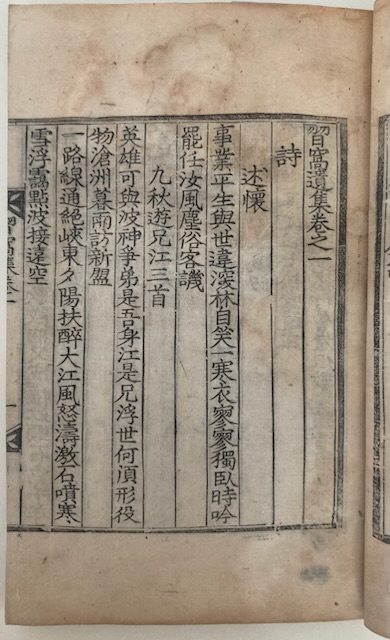 習窩遺集卷之一
詩
述懷
事業平生與世違深林自笑一寒衣寥寥獨臥時吟
罷任汝風塵俗客譏
九秋遊兄江三首
英雄可與波神爭弟是吾身江是兄浮世何須形役
物滄洲暮雨訪新盟
一路線通絕峽東夕陽扶醉大江風怒濤激石噴寒
雪浮靄點波接遠空
習窩集卷一
一